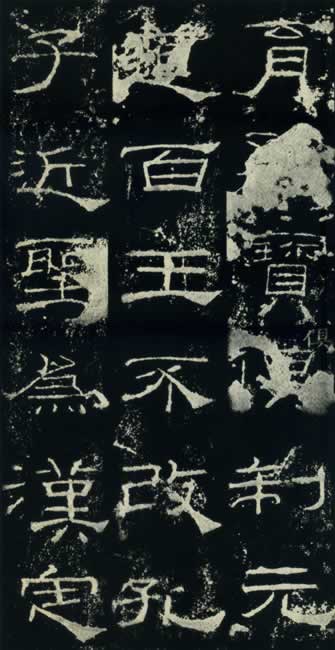 育寶俱制元
道百王不改孔
子近聖為漢定